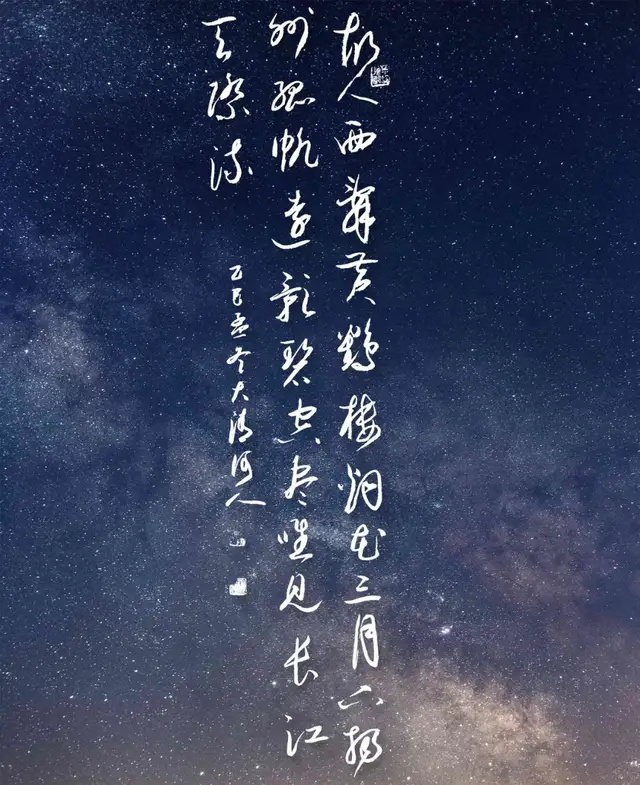 故人西辞黄鹤楼烟花三月下扬
州孤帆远影碧空尽唯见长江
天际流
乙巳孟冬大清河人